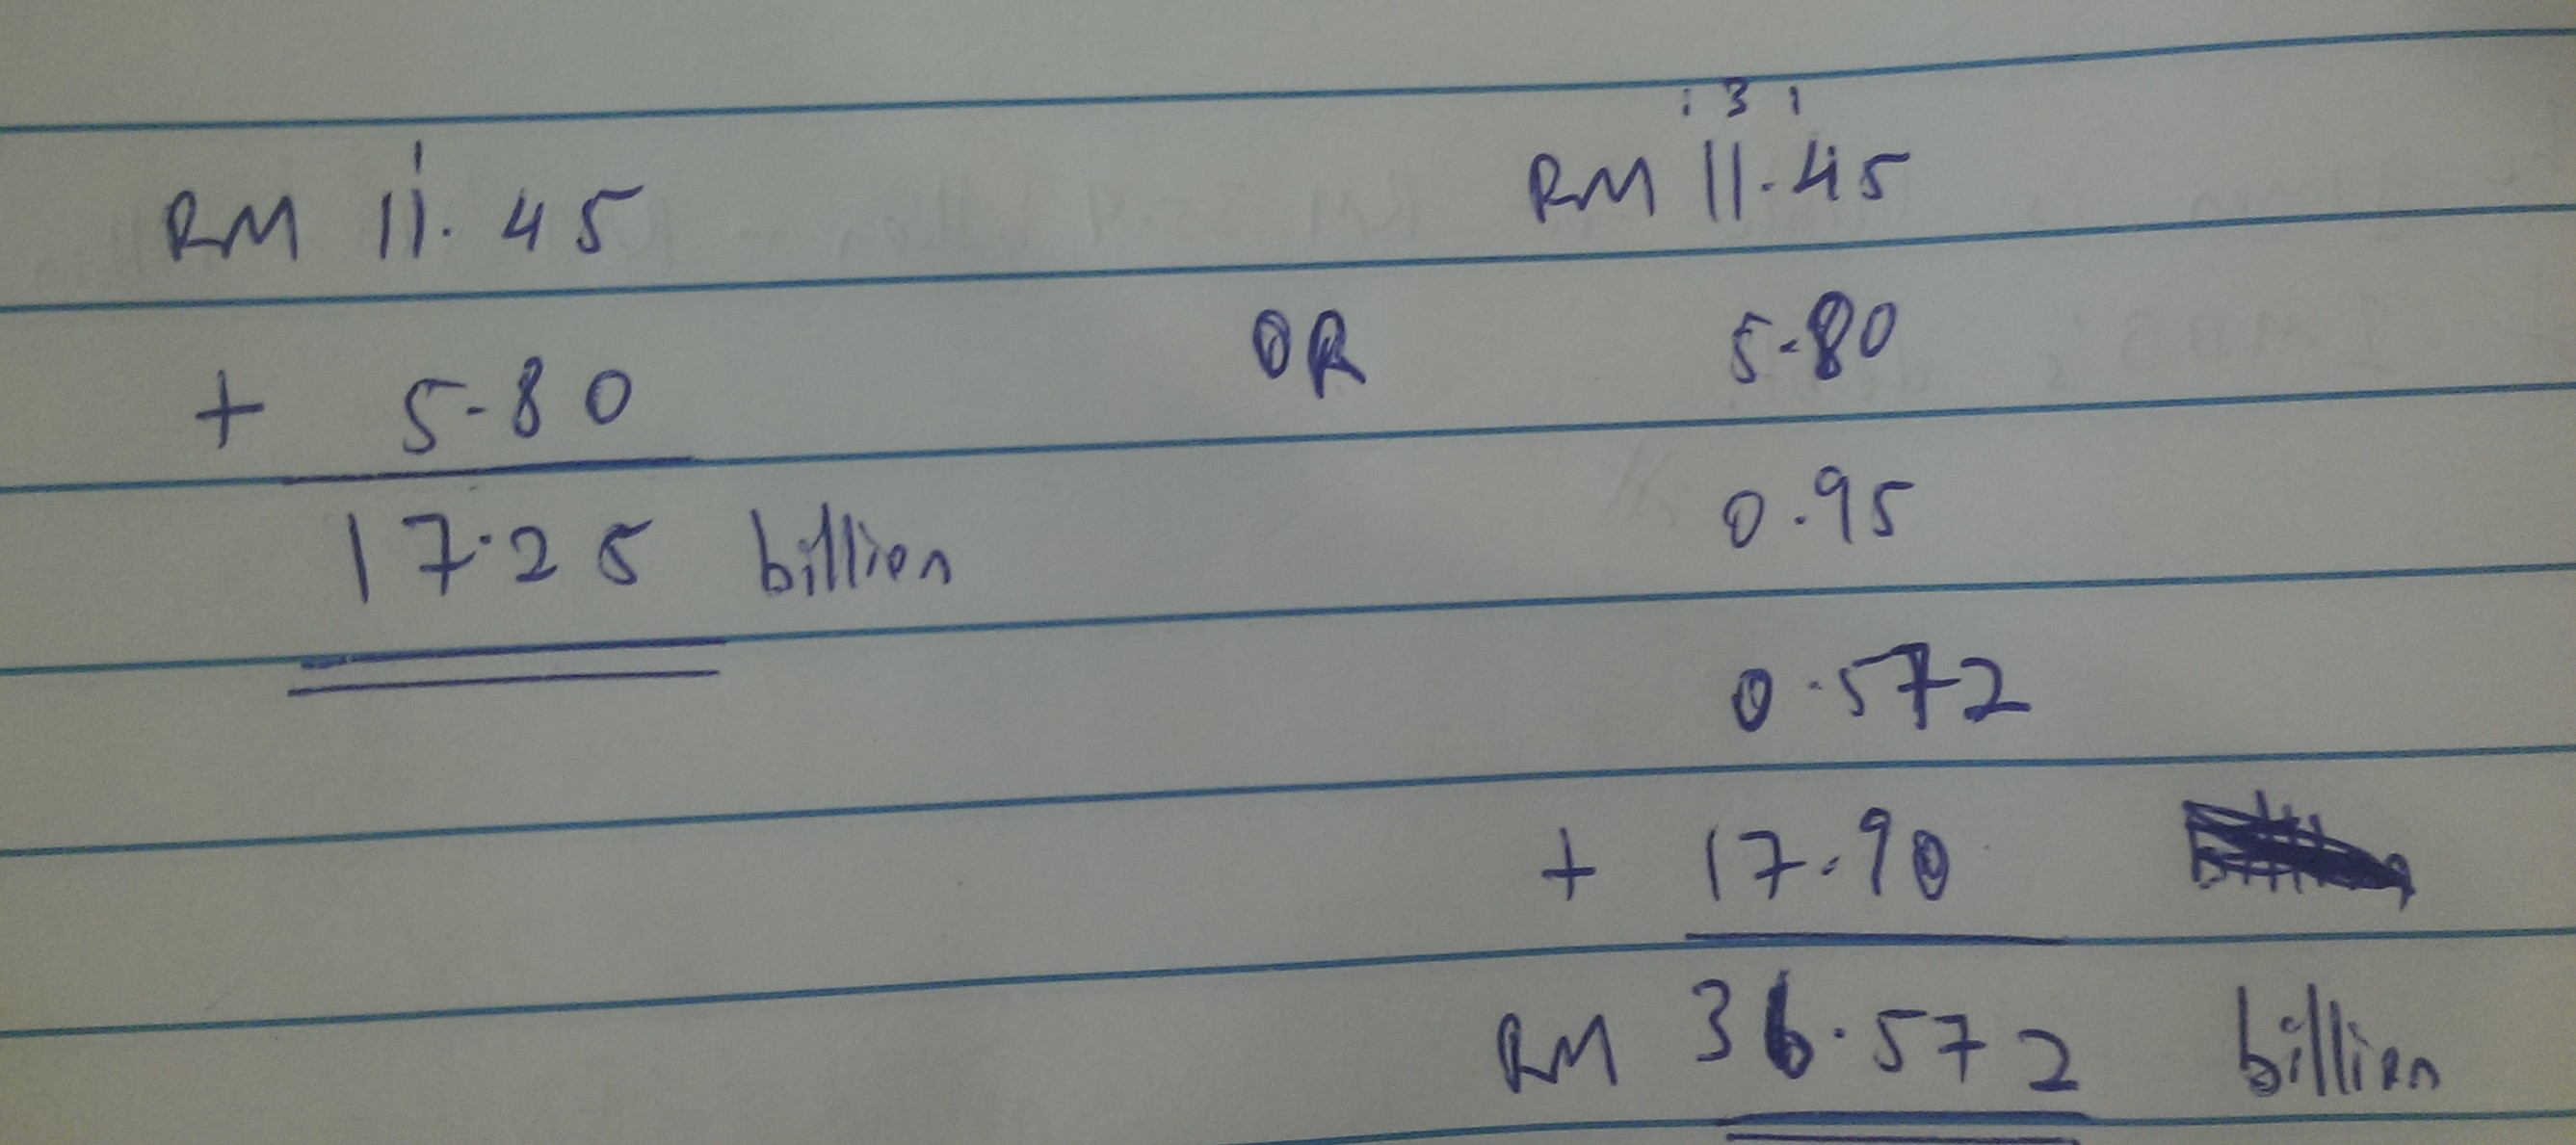 1
RM 11.45
+ 5.80
17.25 billion
OR
1 3 1
RM 11.45
5.80
0.95
0.572
+ 17.90
RM 36.572 billion